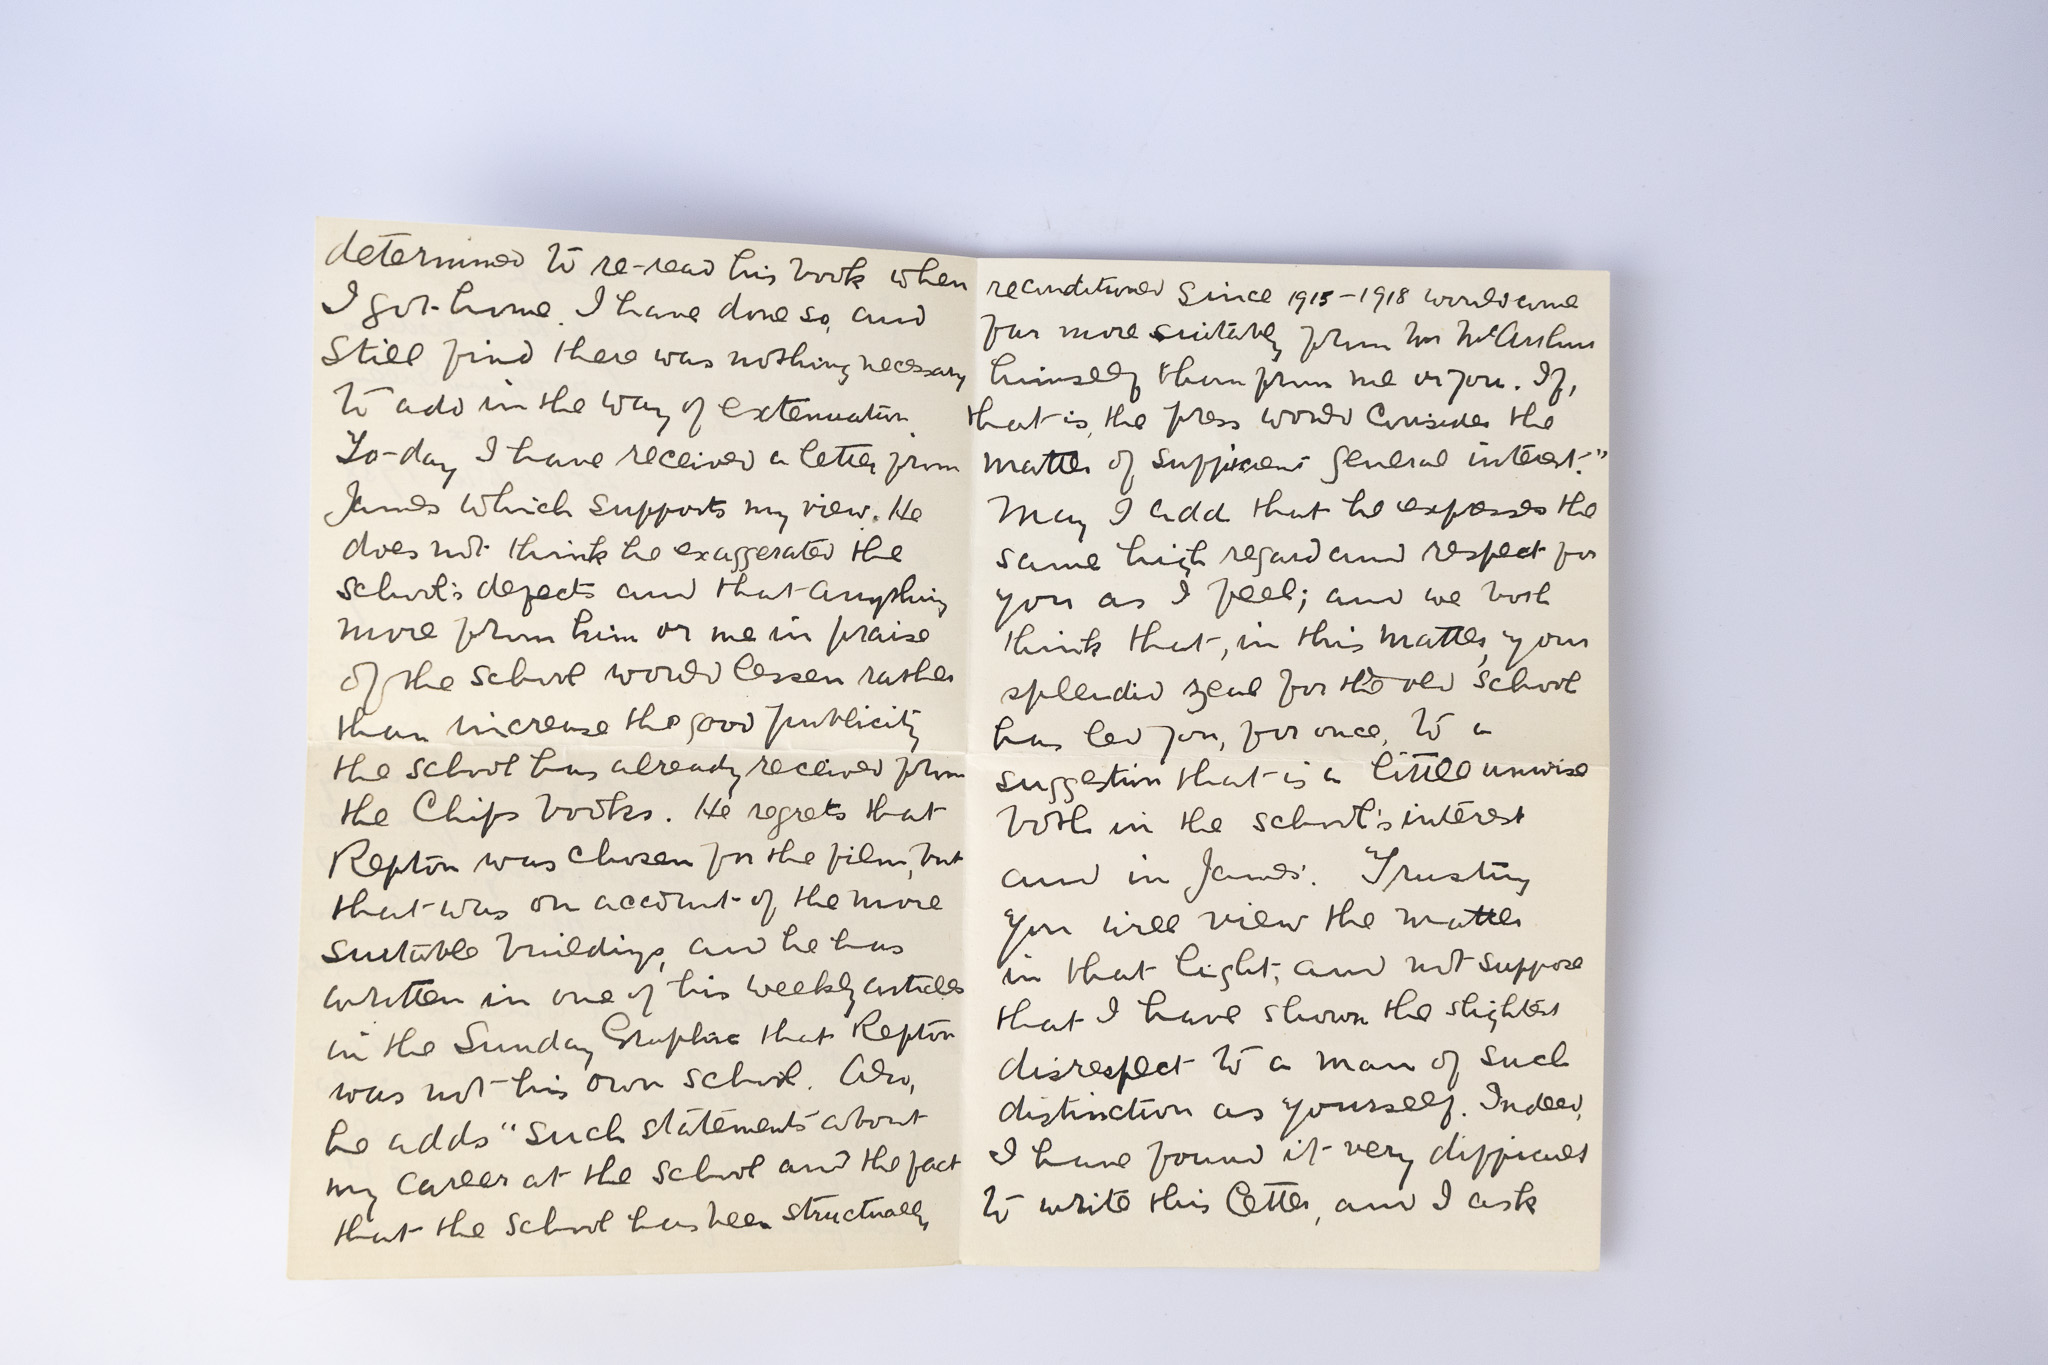 determined to re-read his book when
I got home. I have done so, and
still find there was nothing necessary
to add in the way of extenuation.
To-day I have received a letter from
James which supports my view. He
does not think he exaggerated the
school's defects and that anything
more from him or me in praise
of the school would lessen rather
than increase the good publicity
the school has already received from
the Chips books. He regrets that
Repton was chosen for the film, but
that was on account of the more
suitable buildings, and he has
written in one of his weekly articles
in the Sunday Graphic that Repton
was not his own school. Also,
he adds "such statements about
my career at the school and the fact
that the school has been structurally
reconditioned since 1915-1918 would come
far more suitably from Mr McArthur
himself than from me or you. If,
that is, the press would consider the
matter of sufficient general interest."
May I add that he expresses the
same high regard and respect for
you as I feel; and we both
think that, in this matter, your
splendid zeal for the old school
has led you, for once, to a
suggestion that is a little unwise
both in the school's interest
and in James'. Trusting
you will view the matter
in that light, and not suppose
that I have shown the slightest
disrespect to a man of such
distinction as yourself. Indeed,
I have found it very difficult
to write this letter, and I ask